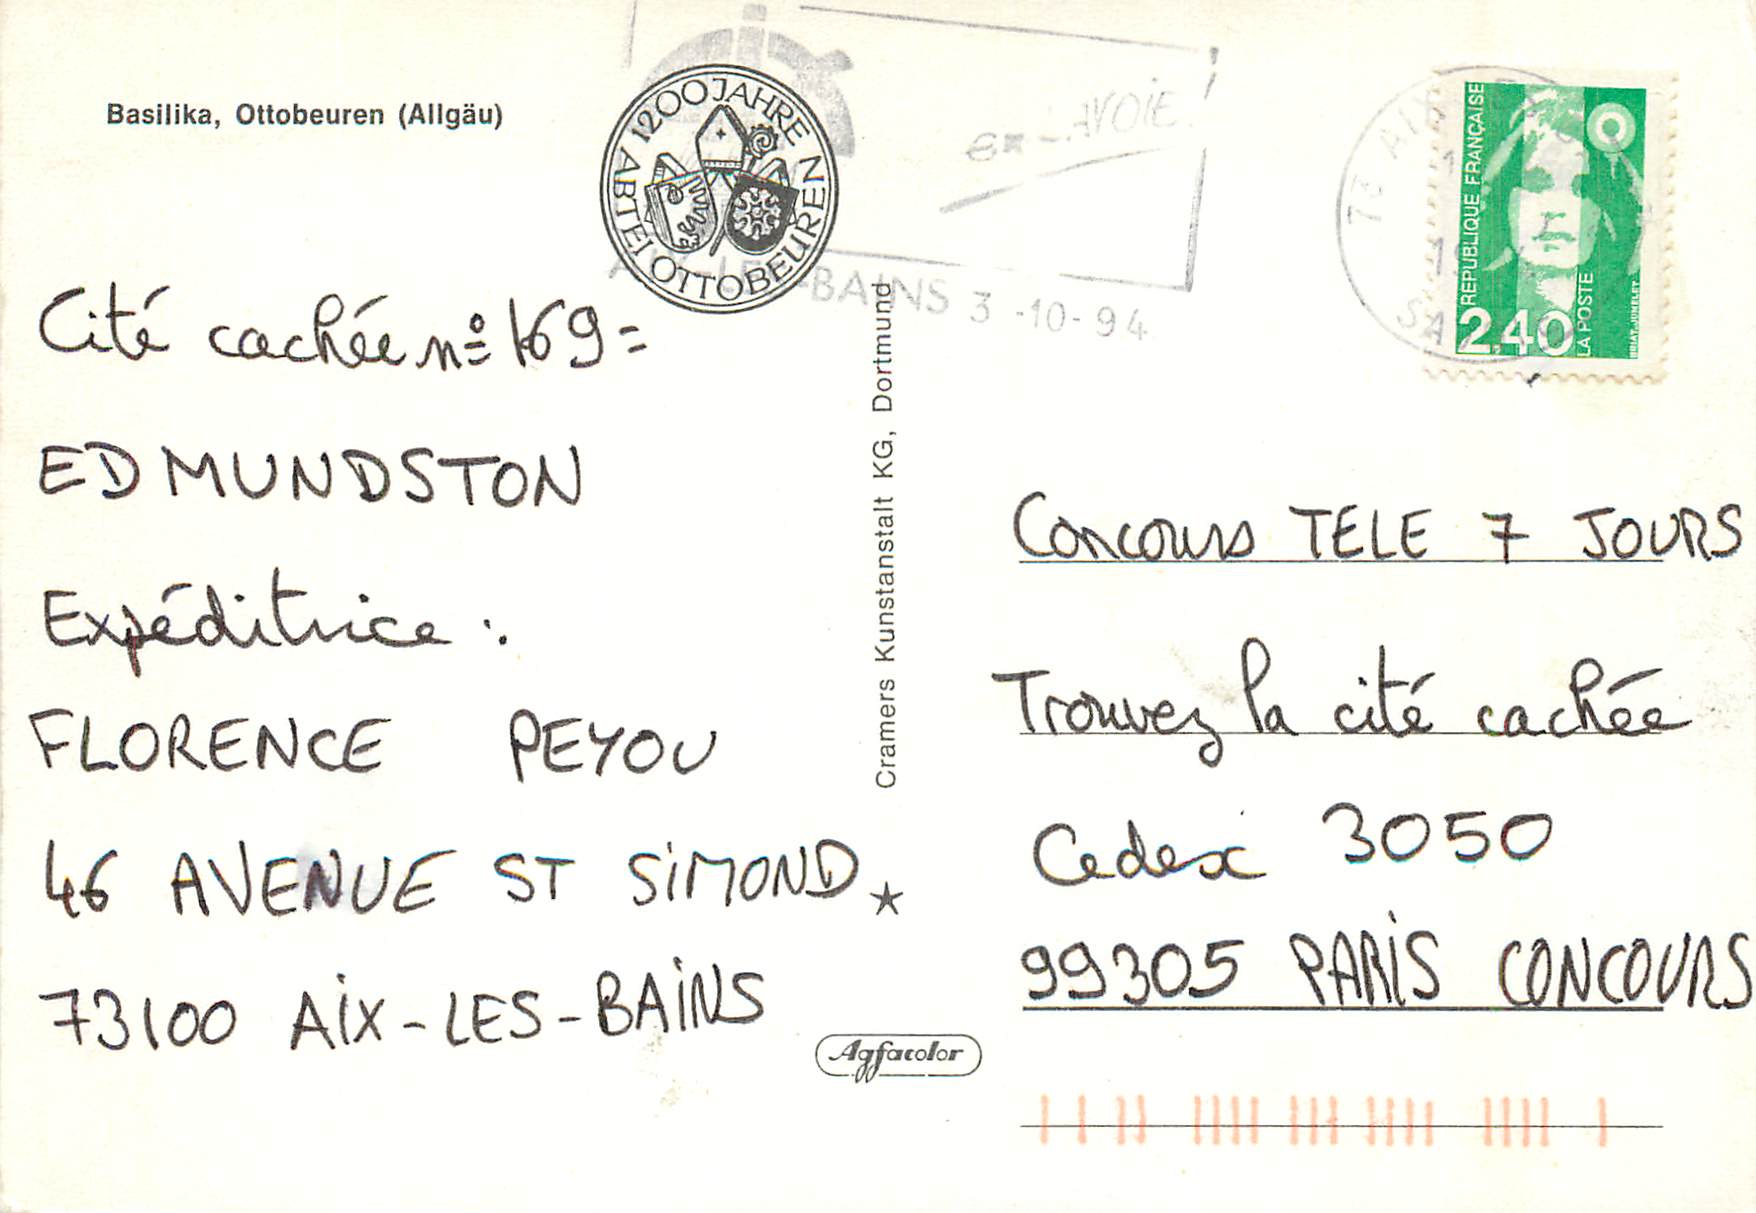 Basilika, Ottobeuren (Allgäu)
1200 JAHRE
ABTEI OTTOBEUREN
SAVOIE
AIX-LES-BAINS 3 -10- 94
73 AIX
REPUBLIQUE FRANÇAISE
2,40
LA POSTE
BRIAT JUMELET
Cité cachée nº 169 =
EDMUNDSTON
Expéditrice :
FLORENCE PEYOU
46 AVENUE ST SIMOND
73100 AIX-LES-BAINS
Cramers Kunstanstalt KG, Dortmund
Agfacolor
Concours TELE 7 JOURS
Trouvez la cité cachée
Cedex 3050
99305 PARIS CONCOURS